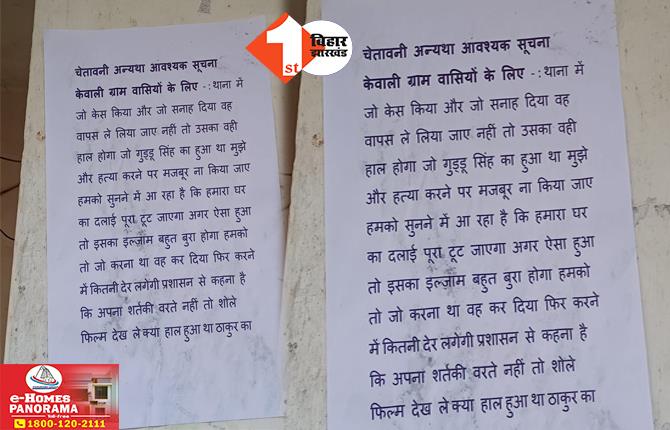 चेतावनी अन्यथा आवश्यक सूचना
केवाली ग्राम वासियों के लिए -: थाना में
जो केस किया और जो सनाह दिया वह
वापस ले लिया जाए नहीं तो उसका वही
हाल होगा जो गुड्डू सिंह का हुआ था मुझे
और हत्या करने पर मजबूर ना किया जाए
हमको सुनने में आ रहा है कि हमारा घर
का दलाई पूरा टूट जाएगा अगर ऐसा हुआ
तो इसका इल्ज़ाम बहुत बुरा होगा हमको
तो जो करना था वह कर दिया फिर करने
में कितनी देर लगेगी प्रशासन से कहना है
कि अपना शर्तकी वरते नहीं तो शोले
फिल्म देख ले क्या हाल हुआ था ठाकुर का
1st बिहार झारखंड
चेतावनी अन्यथा आवश्यक सूचना
केवाली ग्राम वासियों के लिए -: थाना में
जो केस किया और जो सनाह दिया वह
वापस ले लिया जाए नहीं तो उसका वही
हाल होगा जो गुड्डू सिंह का हुआ था मुझे
और हत्या करने पर मजबूर ना किया जाए
हमको सुनने में आ रहा है कि हमारा घर
का दलाई पूरा टूट जाएगा अगर ऐसा हुआ
तो इसका इल्ज़ाम बहुत बुरा होगा हमको
तो जो करना था वह कर दिया फिर करने
में कितनी देर लगेगी प्रशासन से कहना है
कि अपना शर्तकी वरते नहीं तो शोले
फिल्म देख ले क्या हाल हुआ था ठाकुर का
e-HOMES
PANORAMA
1800-120-2111